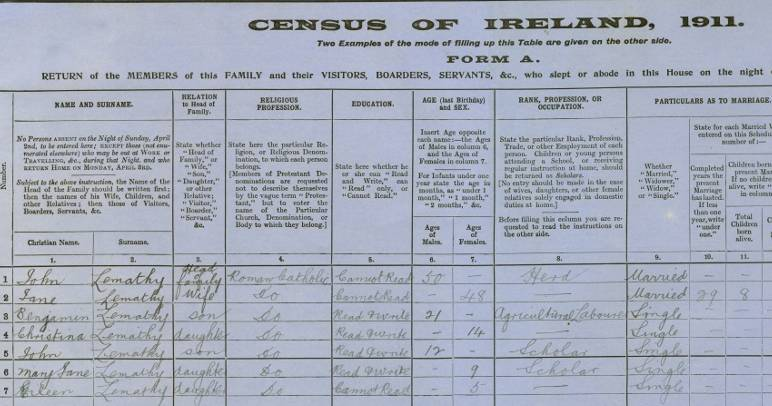 CENSUS OF IRELAND, 1911.
Two Examples of the mode of filling up this Table are given on the other side.
FORM A.
RETURN of the MEMBERS of this FAMILY and their VISITORS, BOARDERS, SERVANTS, &c., who slept or abode in this House on the night
Number.
NAME AND SURNAME.
No Persons ABSENT on the Night of Sunday, April
2nd, to be entered here; EXCEPT those (not enu-
merated elsewhere) who may be out at WORK or
TRAVELLING, &c., during that Night, and who
RETURN HOME ON MONDAY, APRIL 3RD.
Subject to the above instruction, the Name of the
Head of the Family should be written first;
then the names of his Wife, Children, and
other Relatives; then those of Visitors,
Boarders, Servants, &c.
Christian Name. Surname.
1. 2.
RELATION
to Head of
Family.
State whether
"Head of
Family," or
"Wife,"
"Son,"
"Daughter,"
or other
Relative;
"Visitor,"
"Boarder,"
"Servant,"
&c.
3.
RELIGIOUS
PROFESSION.
State here the particular Re-
ligion, or Religious Denom-
ination, to which each person
belongs.
[Members of Protestant De-
nominations are requested
not to describe themselves
by the vague term "Protes-
tant," but to enter the
name of the Particular
Church, Denomination, or
Body to which they belong.]
4.
EDUCATION.
State here whether he
or she can "Read
and Write," can
"Read" only, or
"Cannot Read."
5.
AGE (last Birthday)
and SEX.
Insert Age opposite
each name:—the Ages
of Males in column 6,
and the Ages of
Females in column 7.
For Infants under one
year state the age in
months, as "under 1
month," "1 month,"
"2 months," &c.
Ages of Males. Ages of Females.
6. 7.
RANK, PROFESSION, OR
OCCUPATION.
State the particular Rank, Profession,
Trade, or other Employment of each
person. Children or young persons
attending a School, or receiving
regular instruction at home, should
be returned as Scholars.
[No entry should be made in the case
of wives, daughters, or other female
relatives solely engaged in domestic
duties at home.]
Before filling this column you are re-
quested to read the instructions on
the other side.
8.
PARTICULARS AS TO MARRIAGE.
Whether
"Married,"
"Widower,"
"Widow,"
or "Single."
9.
State for each Married
entered on this
number of:—
Completed
years the
present
Marriage
has lasted.
If less
than one
year, write
"under
one."
10.
Children born
present
If no children
alive, write
in column
Total
Children
born
alive.
11.
1 John Lemathy Head Family Roman Catholic Cannot Read 50 — Herd Married —
2 Jane Lemathy Wife Do Cannot Read — 48 — Married 29 8
3 Benjamin Lemathy son Do Read & write 21 — Agricultural Laboure Single
4 Christina Lemathy daughter Do Read & write — 14 — Single
5 John Lemathy son Do Read & write 12 — Scholar Single
6 Mary Jane Lemathy daughter Do Read & write — 9 Scholar Single
7 Lemathy daughter Do Cannot Read — 5 — Single